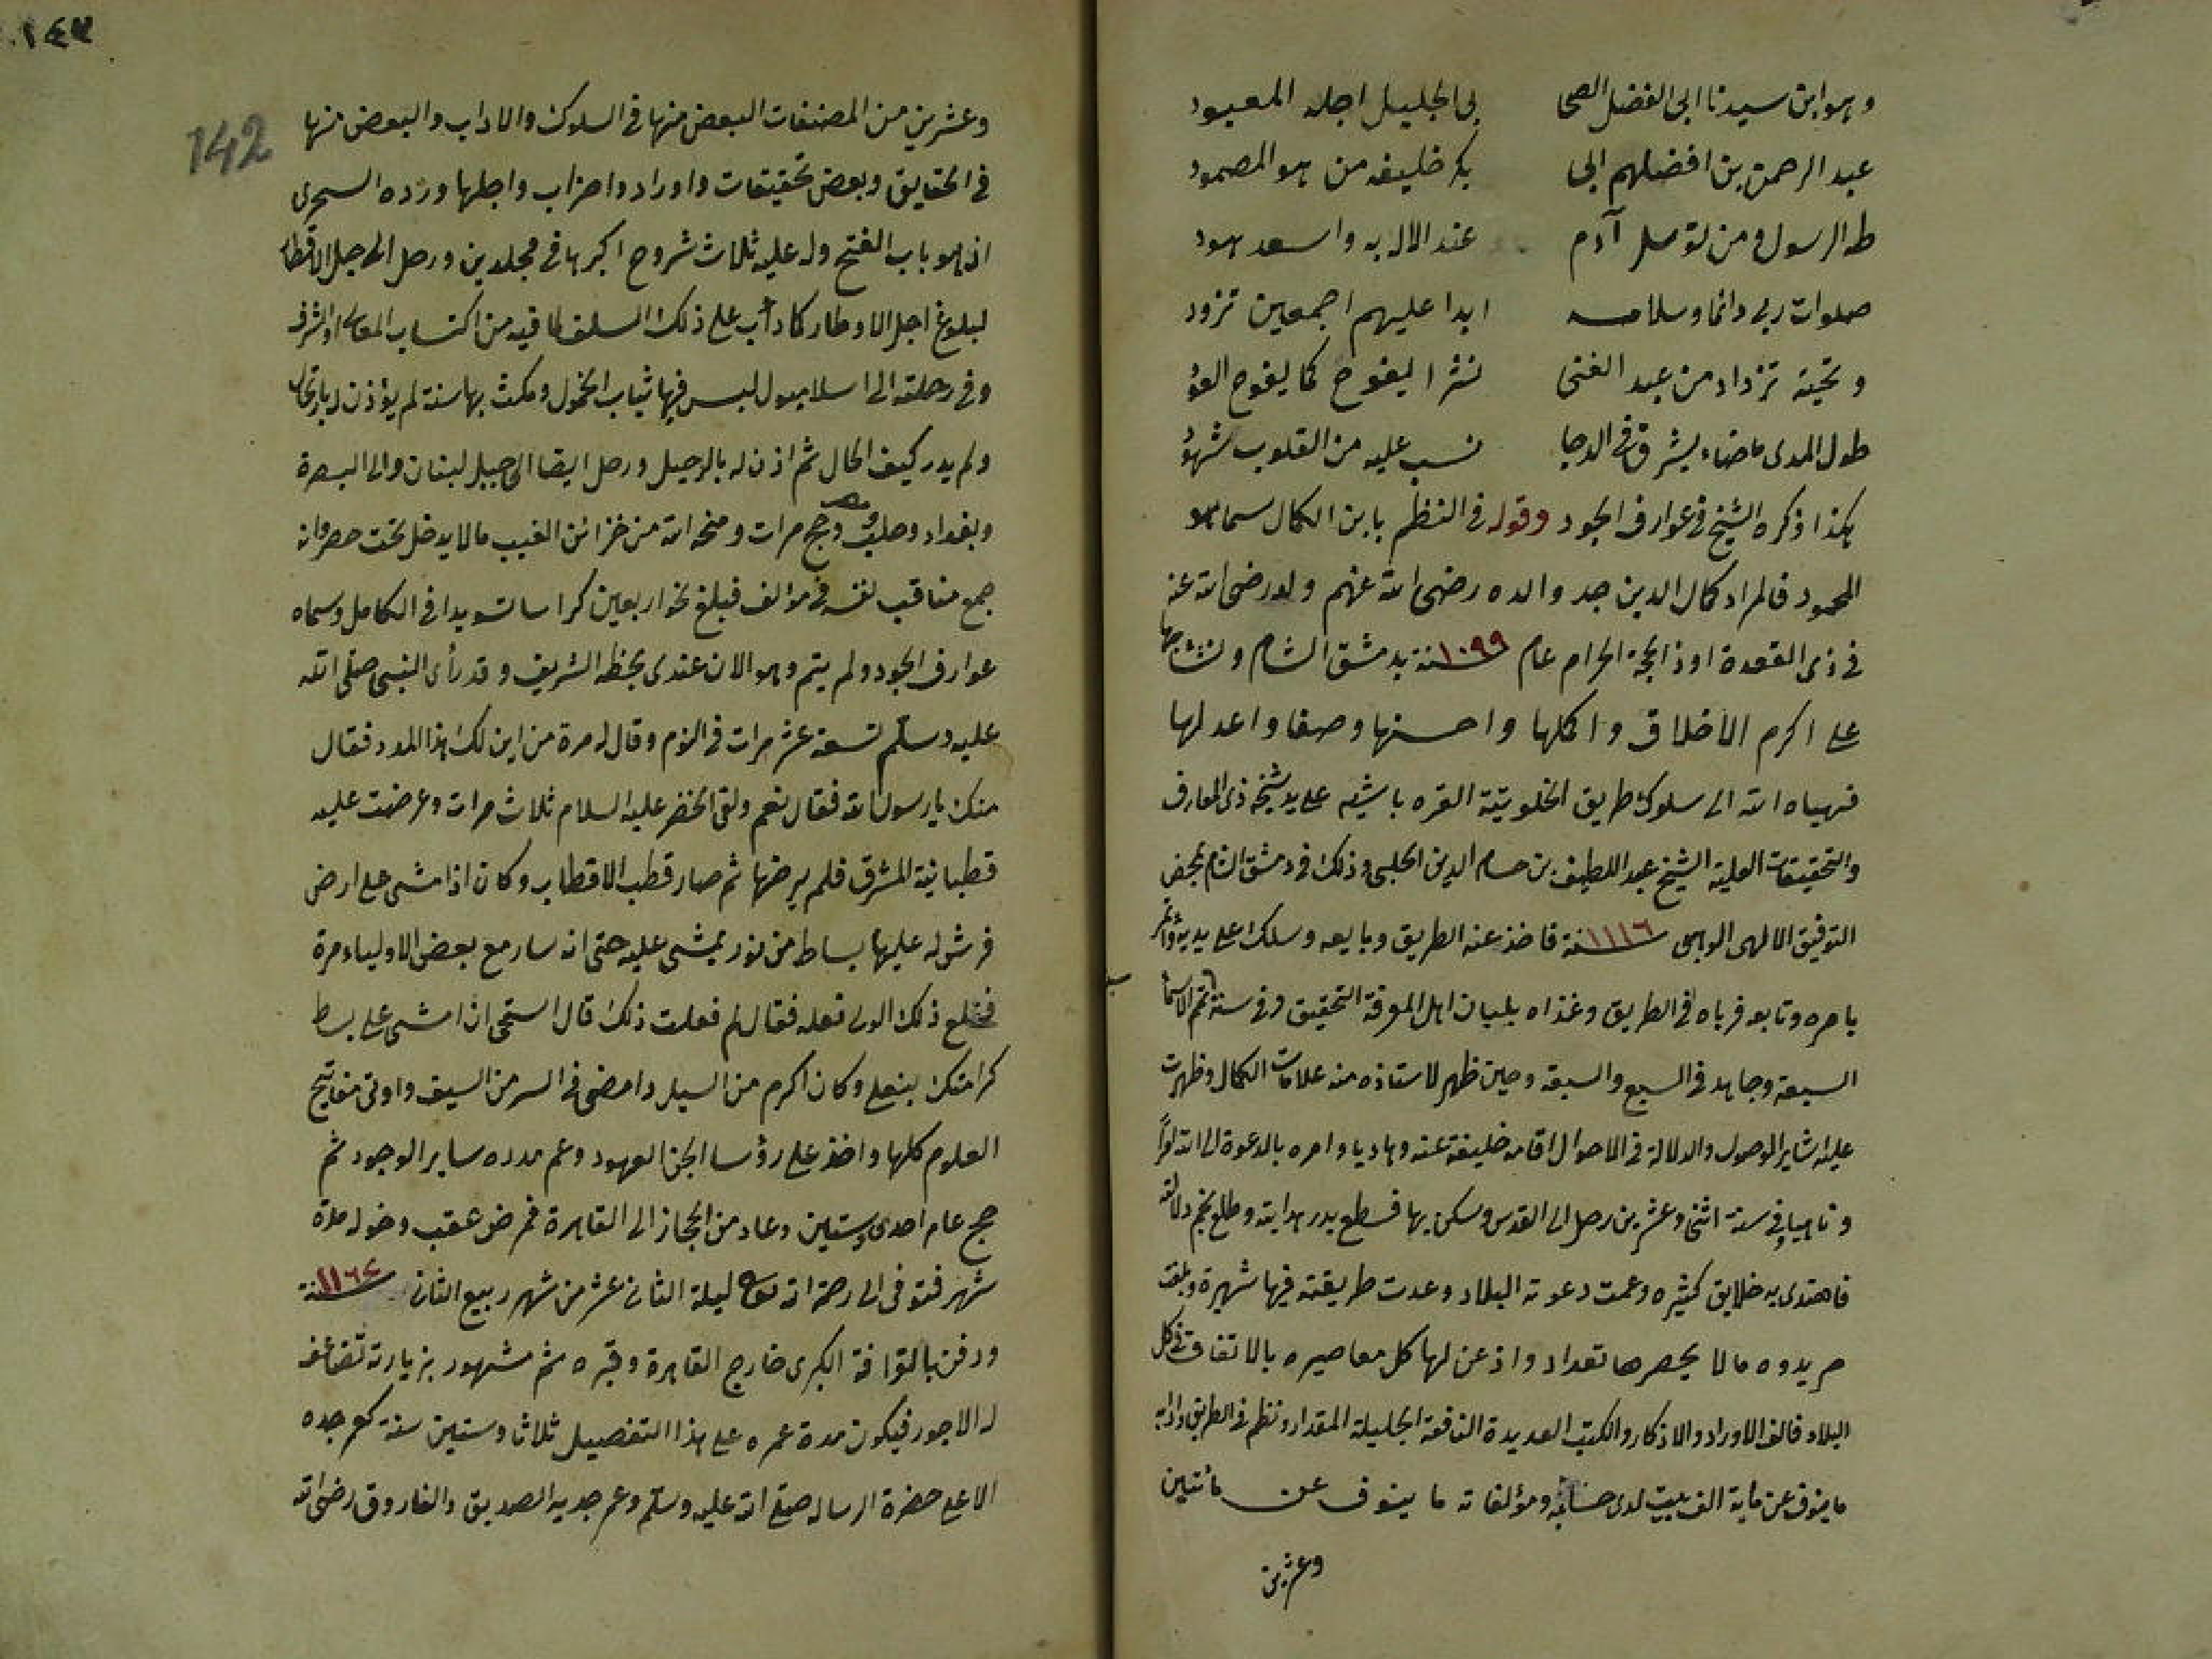 وهو ابن سيدنا ابى الفضل الصحا بى الجليل اجله المعبود
عبد الرحمن بن افضلهم ابى بكر خليفه من هو المصمود
طه الرسول ومن توسل آدم عند الاله به واسعد هود
صلوات ربى دائما وسلامه ابدا عليهم اجمعين تزود
وتحية تزداد من عبد الغنى نشرا يفوح كما يفوح العود
طول المدى ما ضاء يشرق فى الدجا نسب عليه من القلوب شهود
هكذا ذكره الشيخ فى عوارف الجود وقوله فى النظم بابن الكمال سما هو
المحمود فالمراد كمال الدين جد والده رضى الله عنهم ولد رضى الله عنه
فى ذى القعدة او ذا الحجة الحرام عام سنة ١٠٩٩ بدمشق الشام ونشأ بها
على اكرم الاخلاق واكملها واحسنها وصفا واعدلها
فهياه الله الى سلوك طريق الخلوتية القره باشيه على يد شيخه ذى المعارف
والتحقيقات العلية الشيخ عبد اللطيف بن حسام الدين الحلبى وذلك فى دمشق الشام بمحض
التوفيق الالهى الوهبى سنة ١١١٦ فاخذ عنه الطريق وبايعه وسلك على يديه
بامره وتابعه فرباه فى الطريق وغذاه بلبان اهل المعرفة التحقيق وفى سنة اتم الاسما
السبعة وجاهد فى السبع والسبعة وحين ظهر لاستاذه منه علامات الكمال وظهرت
عليه بشاير الوصول والدلالة فى الاحوال اقامه خليفة عنه وهاديا وامره بالدعوة الى الله
وناهيا وفى سنة اثنى وعشرين رحل الى القدس وسكن بها فسطع بدر هدايته وطلع نجم دلالته
فاهتدى به خلايق كثيره وعمت دعوته البلاد وغدت طريقته فيها شهيرة وبلغت
مريدوه ما لا يحصرها تعداد واذعن لها كل معاصيره بالاتفاق فى كل
البلاد فالف الاوراد والاذكار والكتب العديدة النافعة الجليلة المقدار ونظم فى الطريق وادابه
ما ينوف عن ماية الف بيت لدى حسابه ومؤلفاته ما ينوف عن مائتين
وعشرين
١٤٢
142
وعشرين من المصنفات البعض منها فى السلوك والاداب والبعض منها
فى الحقايق وبعض تحقيقات واوراد واحزاب واجلها ورده السحرى
اذ هو باب الفتح وله عليه ثلاث شروح اكبرها فى مجلدين ورحل الى جل الاقطار
لبلوغ اجل الاوطار كما دأب على ذلك السلف لما فيه من اكتساب المعالى والشرف
وفى رحلته الى اسلامبول لبس فيها ثياب الخمول ومكث بها سنة لم يؤذن له بارتحال
ولم يدر كيف الحال ثم اذن له بالرحيل ورحل ايضا الى جبل لبنان والى البصرة
وبغداد وحلب وحج مرات ومنحه الله من خزائن الغيب ما لا يدخل تحت حصر وانه
جمع مناقب نفسه فى مؤلف فبلغ نحو اربعين كراسا تسويدا فى الكامل وسماه
عوارف الجود ولم يتم وهو الان عندى بخطه الشريف وقد رأى النبى صلى الله
عليه وسلم تسعة عشر مرات فى النوم وقال له مرة من اين لك هذا المدد فقال
منك يا رسول الله فقال نعم ولقى الخضر عليه السلام ثلاث مرات وعرضت عليه
قطبانية المشرق فلم يرضها ثم صار قطب الاقطاب وكان اذا مشى على ارض
فرش له عليها بساط من نور يمشى عليه حتى انه سار مع بعض الاولياء مرة
فخلع ذلك الولى نعله فقال لم فعلت ذلك قال استحى ان امشى على بساط
كرامتك بنعلى وكان اكرم من السيل وامضى فى السر من السيف واوتى مفاتيح
العلوم كلها واخذ على رؤسا الجن العهود وعم مدده ساير الوجود ثم
حج عام احدى وستين وعاد من الحجاز الى القاهرة فمرض عقب دخوله مدة
شهر فتوفى الى رحمة الله ليلة الثانى عشر من شهر ربيع الثانى سنة ١١٦٢
ودفن بالقرافة الكبرى خارج القاهرة وقبره ثم مشهور بزيارته تضاعف
له الاجور فيكون مدة عمره على هذا التفصيل ثلاثا وستين سنة كعمر جده
الاعلى حضرة الرساله صلى الله عليه وسلم وعمر جديه الصديق والفاروق رضى الله